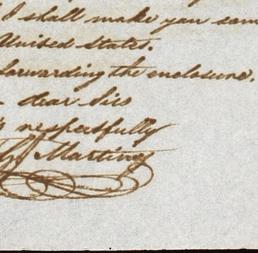 I shall make you some
United States.
forwarding the enclosure.
dear Sirs
respectfully
Martinez